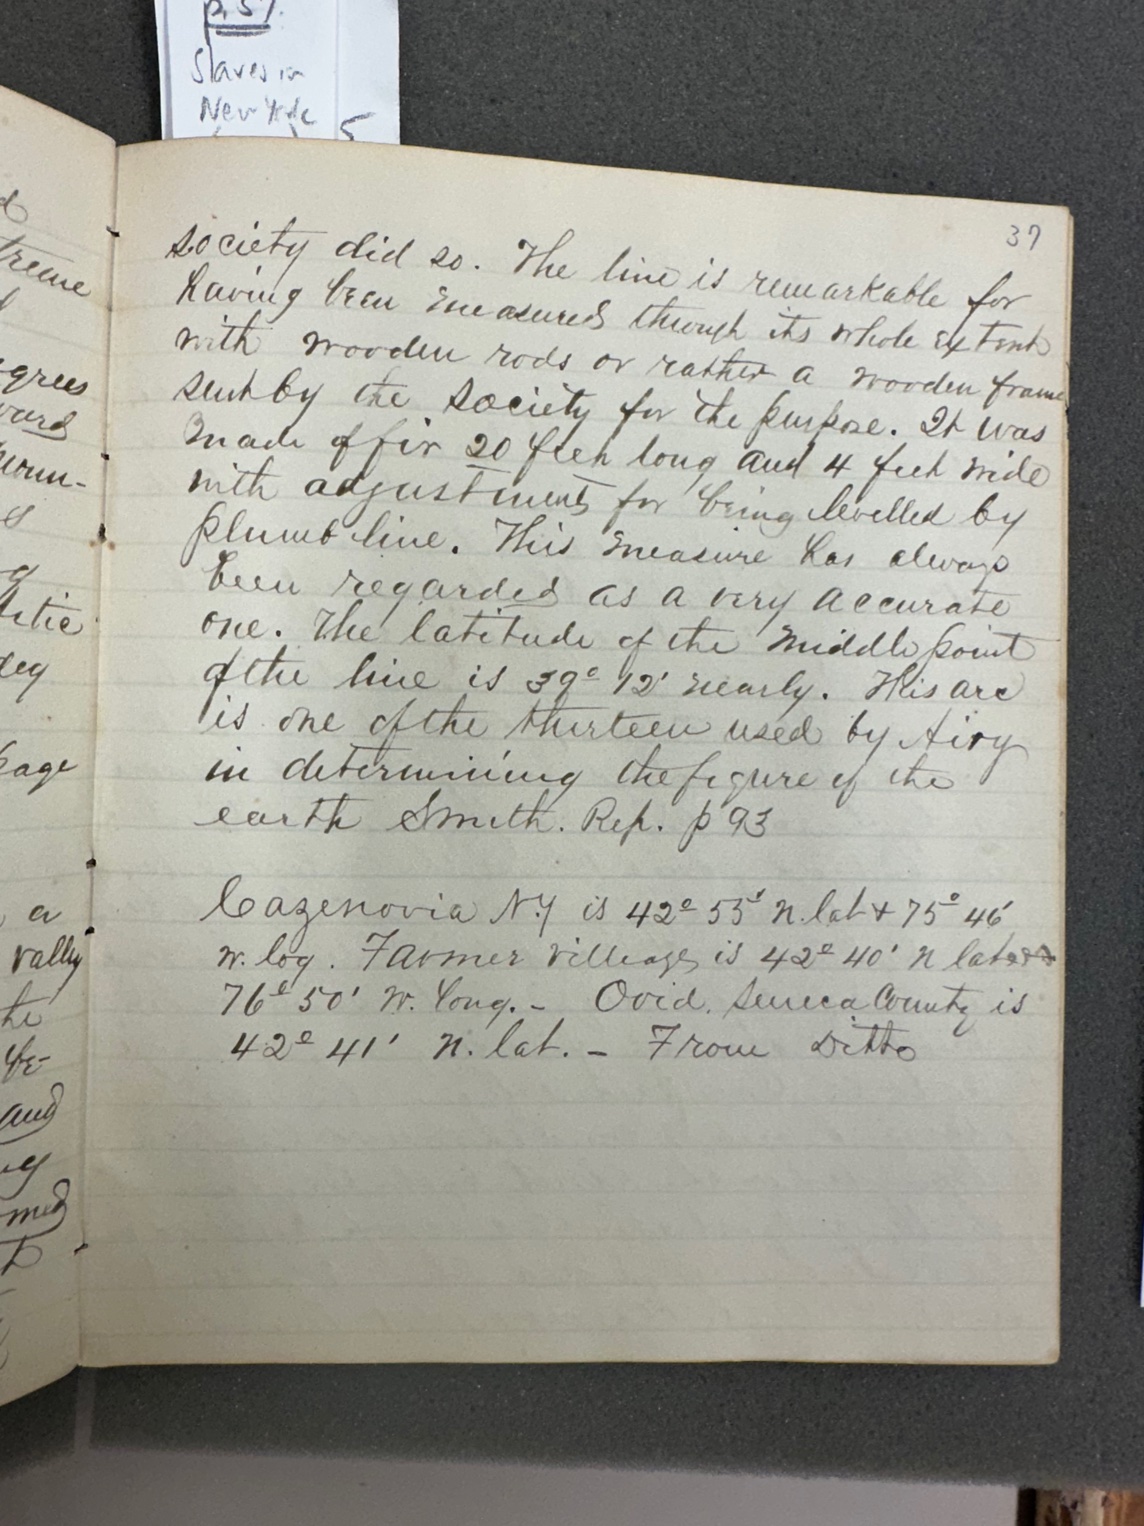 p. 51.
Slaves in
New York
5
37
society did so. The line is remarkable for
having been measured though its whole extent
with wooden rods or rather a wooden frame
sent by the society for the purpose. It was
made of fir 20 feet long and 4 feet wide
with adjustments for being levelled by
plumb line. This measure has always
been regarded as a very accurate
one. The latitude of the middle point
of the line is 39° 12' nearly. This arc
is one of the thirteen used by Airy
in determining the figure of the
earth Smith. Rep. p 93
Cazenovia N.Y is 42° 55' n. lat & 75° 46'
w. log. Farmer Village is 42° 40' n lat
76° 50' W. Long. - Ovid, Seneca County is
42° 41' n. lat. - From Ditto
treme
grees
ward
moun-
g
deg
page
a
valley
the
be-
and
med